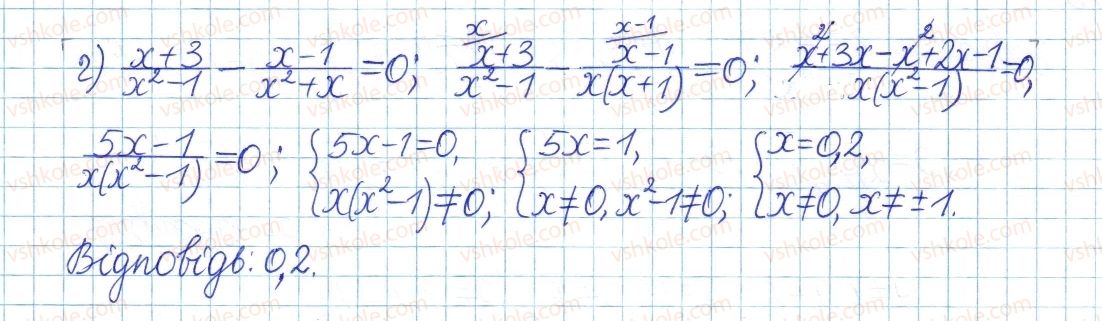 г) (x+3)/(x²-1) - (x-1)/(x²+x) = 0; (x+3)/(x²-1) (x/) - (x-1)/(x(x+1)) (x-1/) = 0; (x²+3x-x²+2x-1)/(x(x²-1)) = 0;
(5x-1)/(x(x²-1)) = 0; { 5x-1=0, x(x²-1)≠0; { 5x=1, x≠0, x²-1≠0; { x=0,2, x≠0, x≠±1.
Відповідь: 0,2.